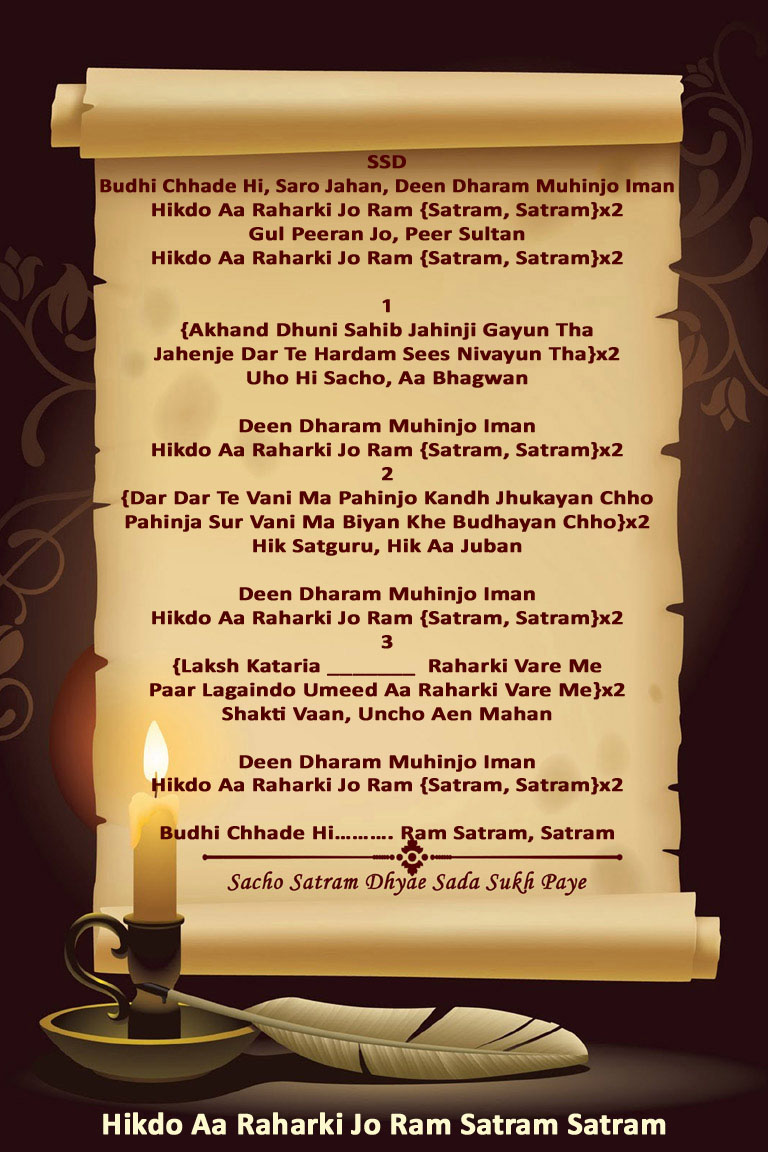 SSD
Budhi Chhade Hi, Saro Jahan, Deen Dharam Muhinjo Iman
Hikdo Aa Raharki Jo Ram {Satram, Satram}x2
Gul Peeran Jo, Peer Sultan
Hikdo Aa Raharki Jo Ram {Satram, Satram}x2
1
{Akhand Dhuni Sahib Jahinji Gayun Tha
Jahenje Dar Te Hardam Sees Nivayun Tha}x2
Uho Hi Sacho, Aa Bhagwan
Deen Dharam Muhinjo Iman
Hikdo Aa Raharki Jo Ram {Satram, Satram}x2
2
{Dar Dar Te Vani Ma Pahinjo Kandh Jhukayan Chho
Pahinja Sur Vani Ma Biyan Khe Budhayan Chho}x2
Hik Satguru, Hik Aa Juban
Deen Dharam Muhinjo Iman
Hikdo Aa Raharki Jo Ram {Satram, Satram}x2
3
{Laksh Kataria _______ Raharki Vare Me
Paar Lagaindo Umeed Aa Raharki Vare Me}x2
Shakti Vaan, Uncho Aen Mahan
Deen Dharam Muhinjo Iman
Hikdo Aa Raharki Jo Ram {Satram, Satram}x2
Budhi Chhade Hi.......... Ram Satram, Satram
Sacho Satram Dhyae Sada Sukh Paye
Hikdo Aa Raharki Jo Ram Satram Satram